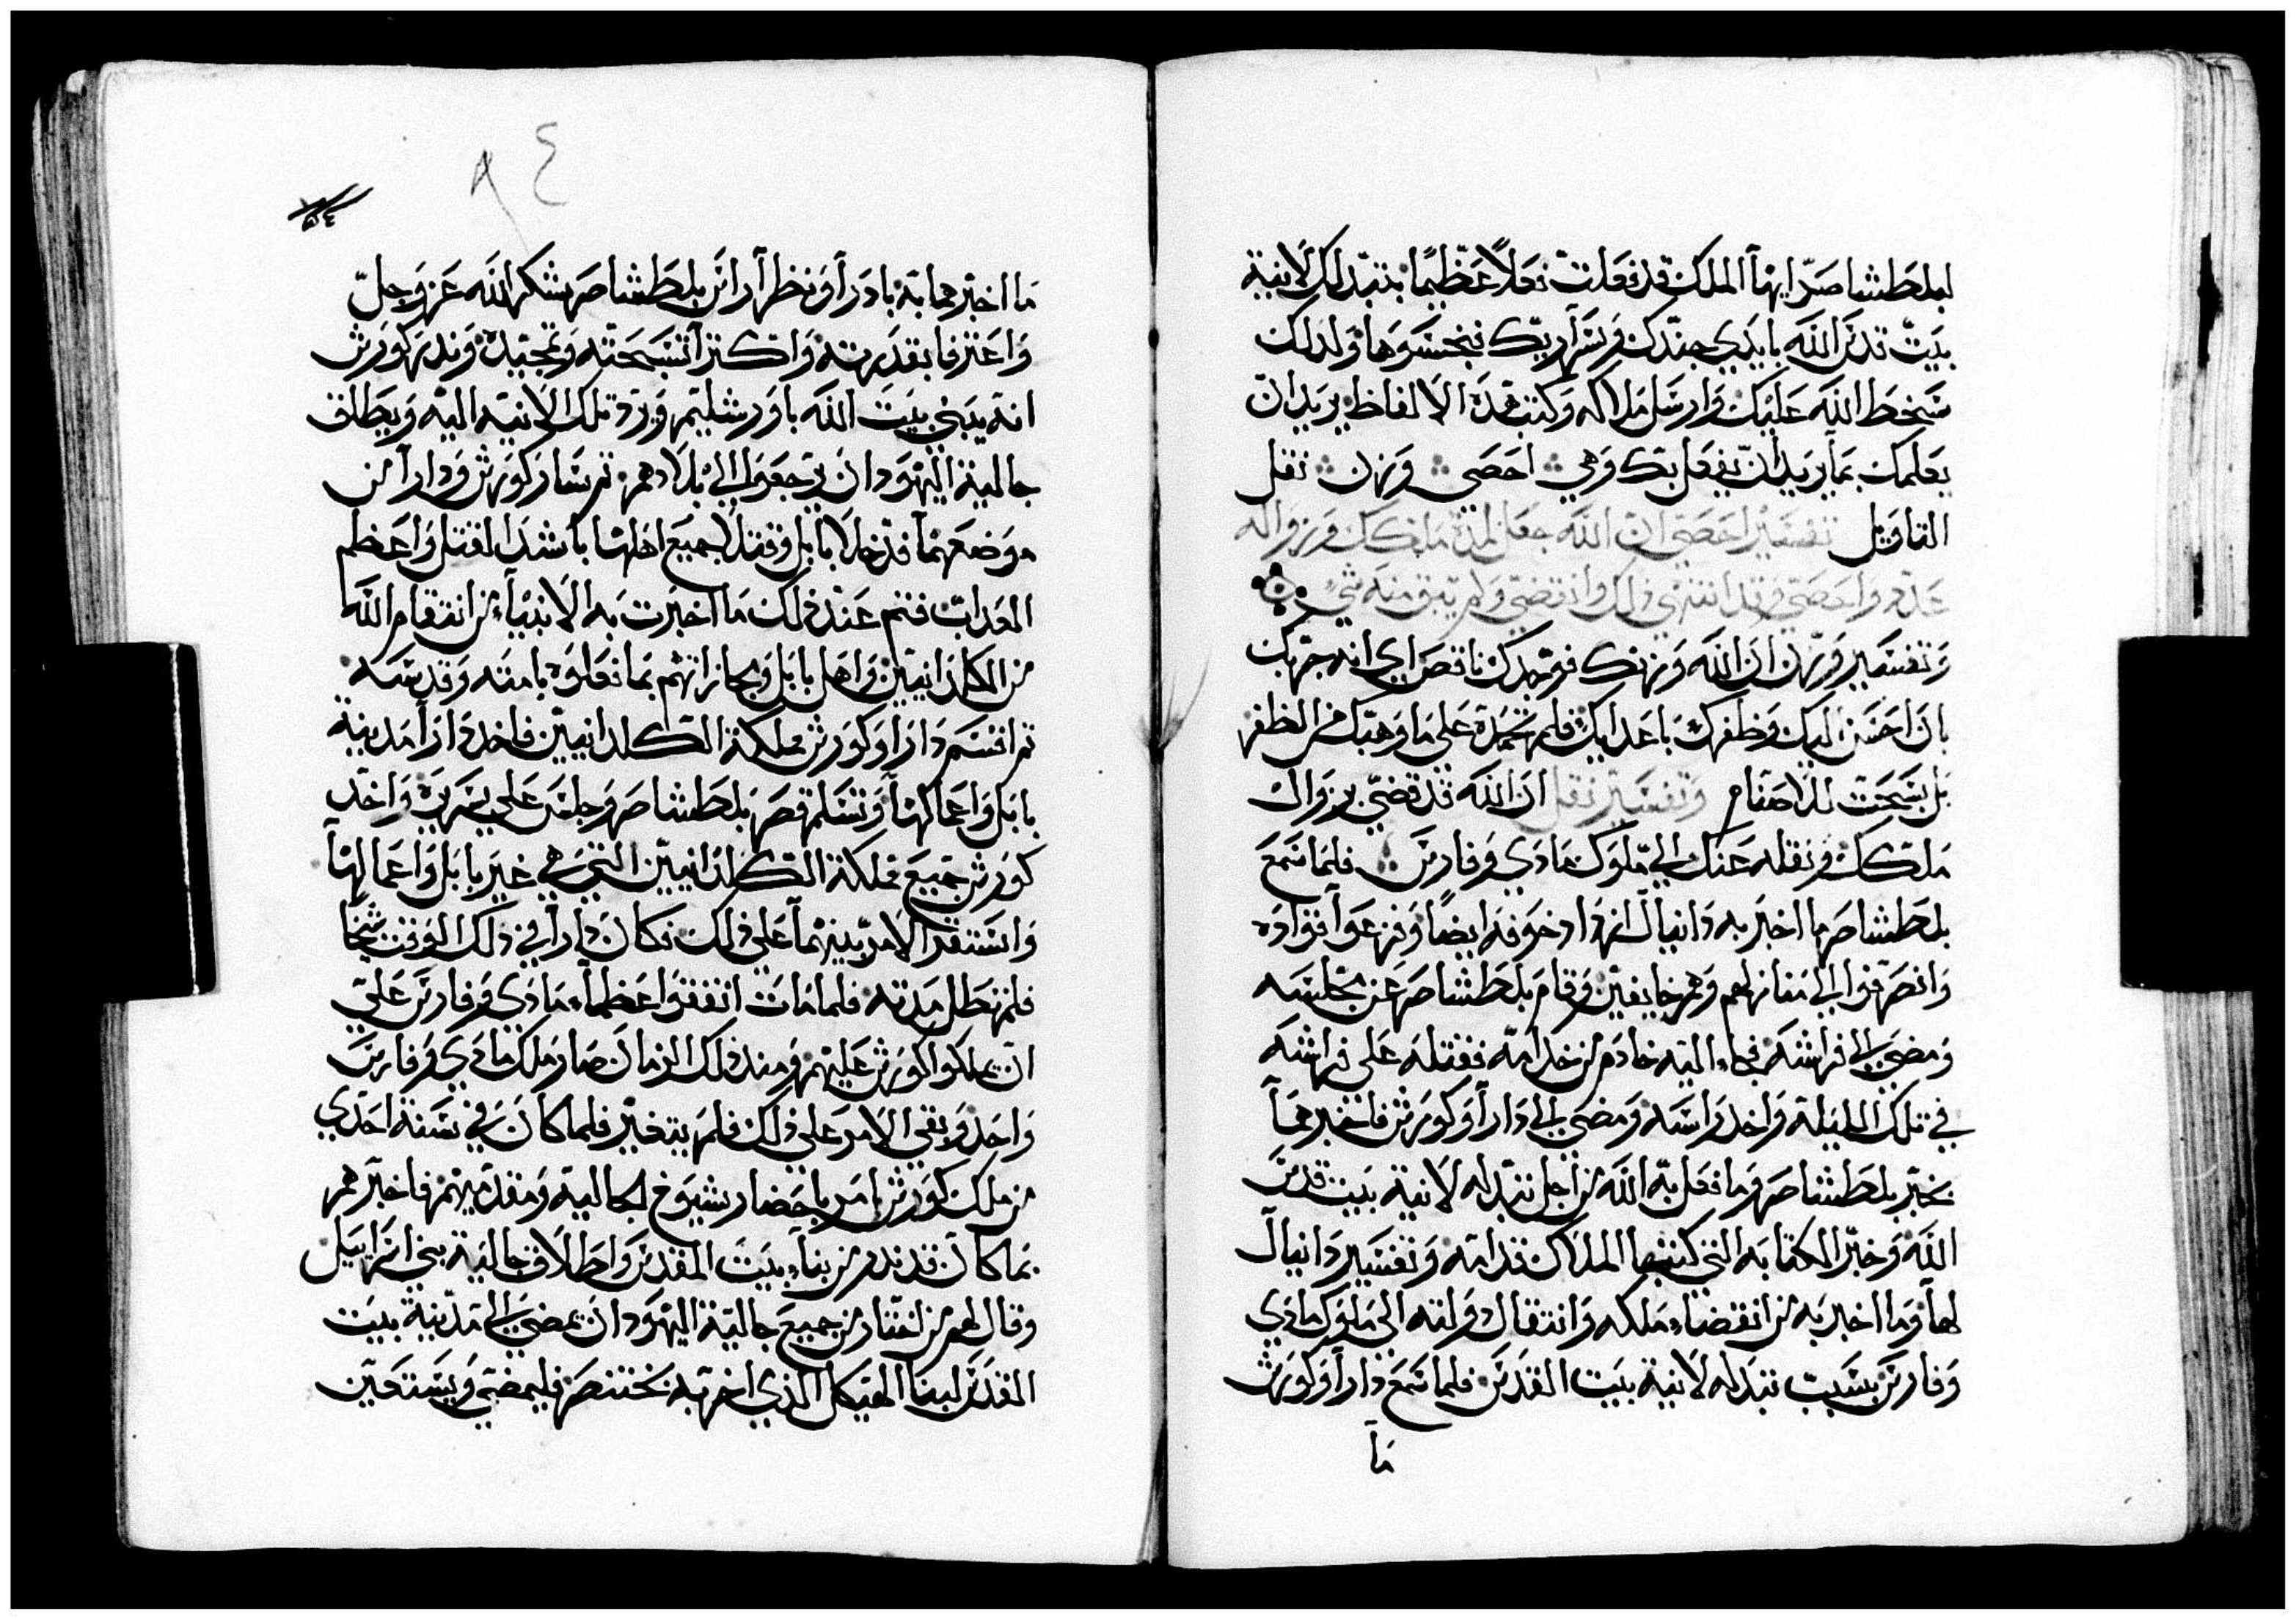 لبلطشاصر ايها الملك قد فعلت فعلاً عظيمًا بتبدلك لانية
بيت قدس الله بايدي جندك وسراريك فنجسوها ولدلك
سخط الله عليك وارسل ملاكه وكتب هده الالفاظ يريد ان
يعلمك بما يريد ان يفعل بك وهي احصي وزن نقل
التاويل تفسير احصي ان الله جعل لمدة ملكك وزواله
عدد واحصي وقد انتهي دلك وانقضي ولم يبق منه شي
وتفسير وزن ان الله وزنك فوجدك ناقص اي انه جربك
بان احسن اليك وظفرك باعدايك فلم تحمده علي ما وهبك من الظفر
بل سبحت للاصنام وتفسير نقل ان الله قد قضي بزوال
ملكك ونقله عنك الي ملوك مادي وفارس فلما سمع
بلطشاصر ما اخبر به دانيال ازداد خوفه ايضاً وفزعوا قواده
وانصرفوا الي منازلهم وهم خايفين وقام بلطشاصر عن مجلسه
ومضي الي فراشه فجاء اليه خادم من خدامه فقتله علي فراشه
في تلك الليلة واخد راسه ومضي الي دارا وكورش فاخبرهما
بخبر بلطشاصر وما فعل به الله من اجل تبدله لانية بيت قدس
الله وخبر الكتابه التي كتبها الملاك قدامه وتفسير دانيال
لها وما اخبر به من انقضاء ملكه وانتقال دولته الي ملوك مادي
وفارس بسبب تبدله لانية بيت القدس فلما سمع دارا وكورش
ما
٨٤
٥٤
ما اخبرهما به بادرا ونظرا راس بلطشاصر شكر الله عز وجل
واعترفا بقدرته واكثرا تسبحته وتمجيده وندر كورش
انه يبني بيت الله باورشليم ويرد تلك الانيه اليه ويطلق
جالية اليهود ان يرجعوا الي بلادهم ثم سار كورش ودارا من
موضعهما فدخلا بابل وقتلا جميع اهلها باشد القتل واعظم
العداب فتم عند دلك ما اخبرت به الانبياء من انتقام الله
من الكلدانيين واهل بابل ومجازاتهم بما فعلوه بامته وقدسه
ثم اقتسم دارا وكورش مملكة الكلدانيين فاخد دارا مدينة
بابل واعمالها وتسلم قصر بلطشاصر وجلس علي سريره واخد
كورش جميع مملكة الكلدانيين التي هي غير بابل واعمالها
واستقر الامر بينهما علي دلك فكان دارا في دلك الوقت شيخا
فلم تطل مدته فلما مات اتفقوا عظماء مادي وفارس علي
ان يملكوا كورش عليهم ومند دلك الزمان صار ملك مادي وفارس
واحد وبقي الامر علي دلك فلم يتغير فلما كان في سنة احدي
من ملك كورش امر باحضار شيوخ الجالية ومقدميهم فاخبرهم
بما كان قد ندر من بناء بيت المقدس واطلاق جالية بني اسراييل
وقال لهم من اختار من جميع جالية اليهود ان يمضي الي مدينة بيت
القدس لبنا الهيكل الدي اخربه بختنصر فليمضي ويستعين